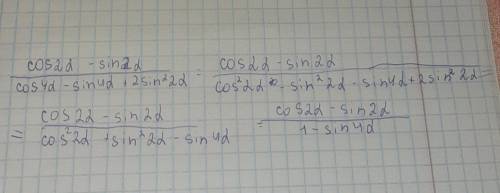 (cos2α - sin2α)/(cos4α - sin4α + 2sin²2α) = (cos2α - sin2α)/(cos²2α - sin²2α - sin4α + 2sin²2α) =
= (cos2α - sin2α)/(cos²2α + sin²2α - sin4α) = (cos2α - sin2α)/(1 - sin4α)